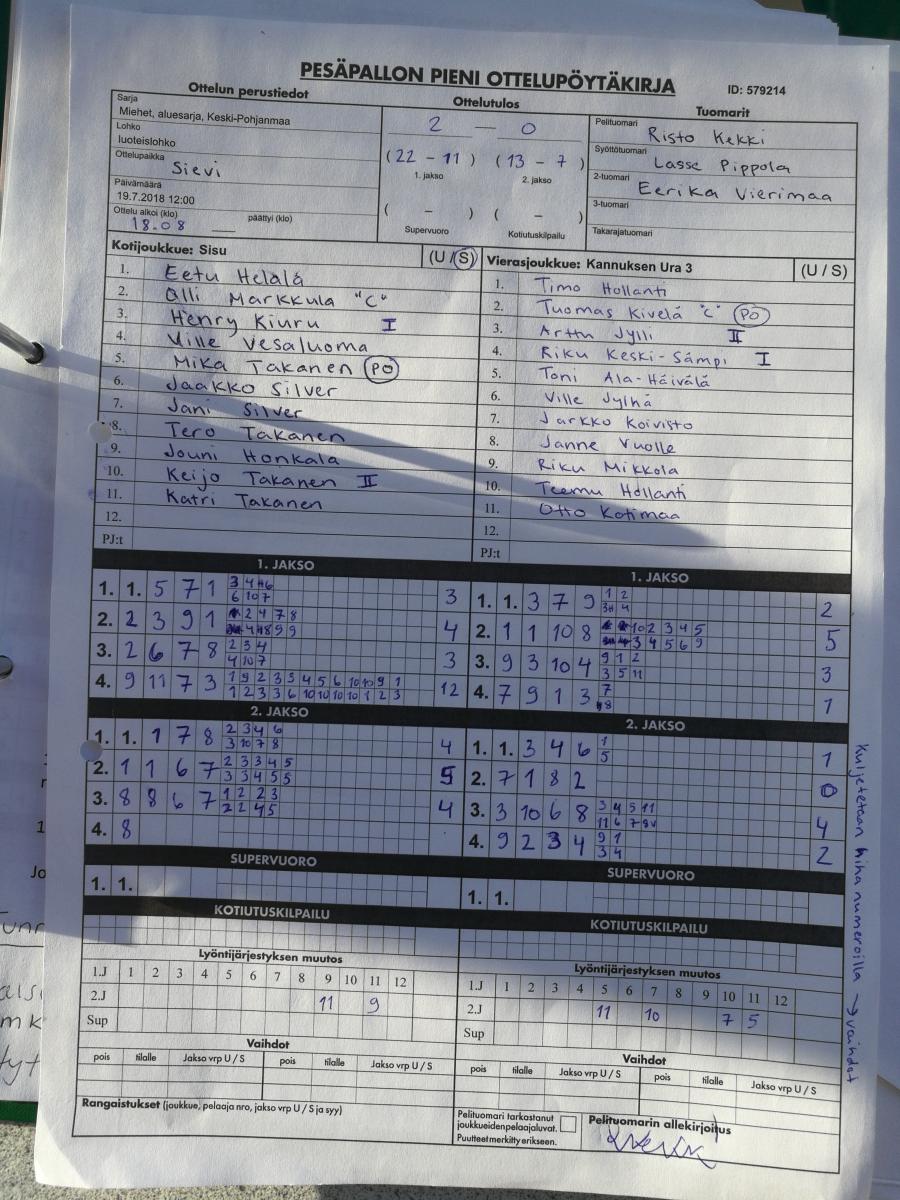 PESÄPALLON PIENI OTTELUPÖYTÄKIRJA
ID: 579214
Ottelun perustiedot
Sarja
Miehet, aluesarja, Keski-Pohjanmaa
Lohko
luoteislohko
Ottelupaikka
Sievi
Päivämäärä
19.7.2018 12:00
Ottelu alkoi (klo) päättyi (klo)
18.08
Ottelutulos
2 — 0
(22 - 11) (13 - 7)
1. jakso 2. jakso
( - ) ( - )
Supervuoro Kotiutuskilpailu
Tuomarit
Pelituomari
Risto Kekki
Syöttötuomari
Lasse Pippola
2-tuomari
Eerika Vierimaa
3-tuomari
Takarajatuomari
Kotijoukkue: Sisu (U / S)
1. Eetu Helalä
2. Olli Markkula "C"
3. Henry Kiuru I
4. Ville Vesaluoma
5. Mika Takanen PÖ
6. Jaakko Silver
7. Jani Silver
8. Tero Takanen
9. Jouni Honkala
10. Keijo Takanen II
11. Katri Takanen
12.
PJ:t
Vierasjoukkue: Kannuksen Ura 3 (U / S)
1. Timo Hollanti
2. Tuomas Kivelä "C" PÖ
3. Arttu Jylli II
4. Riku Keski-Sämpi I
5. Toni Ala-Häivälä
6. Ville Jylhä
7. Jarkko Koivisto
8. Janne Vuolle
9. Riku Mikkola
10. Teemu Hollanti
11. Otto Kotimaa
12.
PJ:t
1. JAKSO
1. 1. 5 7 1 3
2. 2 3 9 1 4
3. 2 6 7 8 2 3 4 3
4 10 7
4. 9 11 7 3 1 9 2 3 3 4 5 6 10 10 9 1 12
1 2 3 3 6 10 10 10 10 1 2 3
2. JAKSO
1. 1. 1 7 8 2 3 4 6 4
3 10 7 8
2. 1 1 6 7 2 3 3 4 5 5
3 3 4 5 5
3. 8 8 6 7 1 2 2 3 4
2 2 4 5
4. 8
SUPERVUORO
1. 1.
KOTIUTUSKILPAILU
1. JAKSO
1. 1. 3 7 9 1 2 2
2. 1 1 10 8 5
3. 9 3 10 4 9 1 2 3
3 5 11
4. 7 9 1 3 7 1
2. JAKSO
1. 1. 3 4 6 1 1
5
2. 7 1 8 2 0
3. 3 10 6 8 3 4 5 11 4
4. 9 2 3 4 9 1 2
3 4
SUPERVUORO
1. 1.
KOTIUTUSKILPAILU
Lyöntijärjestyksen muutos
1.J 1 2 3 4 5 6 7 8 9 10 11 12
2.J 11 9
Sup
Vaihdot
pois tilalle Jakso vrp U / S pois tilalle Jakso vrp U / S
Lyöntijärjestyksen muutos
1.J 1 2 3 4 5 6 7 8 9 10 11 12
2.J 11 10 7 5
Sup
Vaihdot
pois tilalle Jakso vrp U / S pois tilalle Jakso vrp U / S
Rangaistukset (joukkue, pelaaja nro, jakso vrp U / S ja syy)
Pelituomari tarkastanut
joukkueiden pelaajaluvat.
Puutteet merkitty erikseen.
Pelituomarin allekirjoitus
Kuljetetaan hihanumeroilla → vaihdot